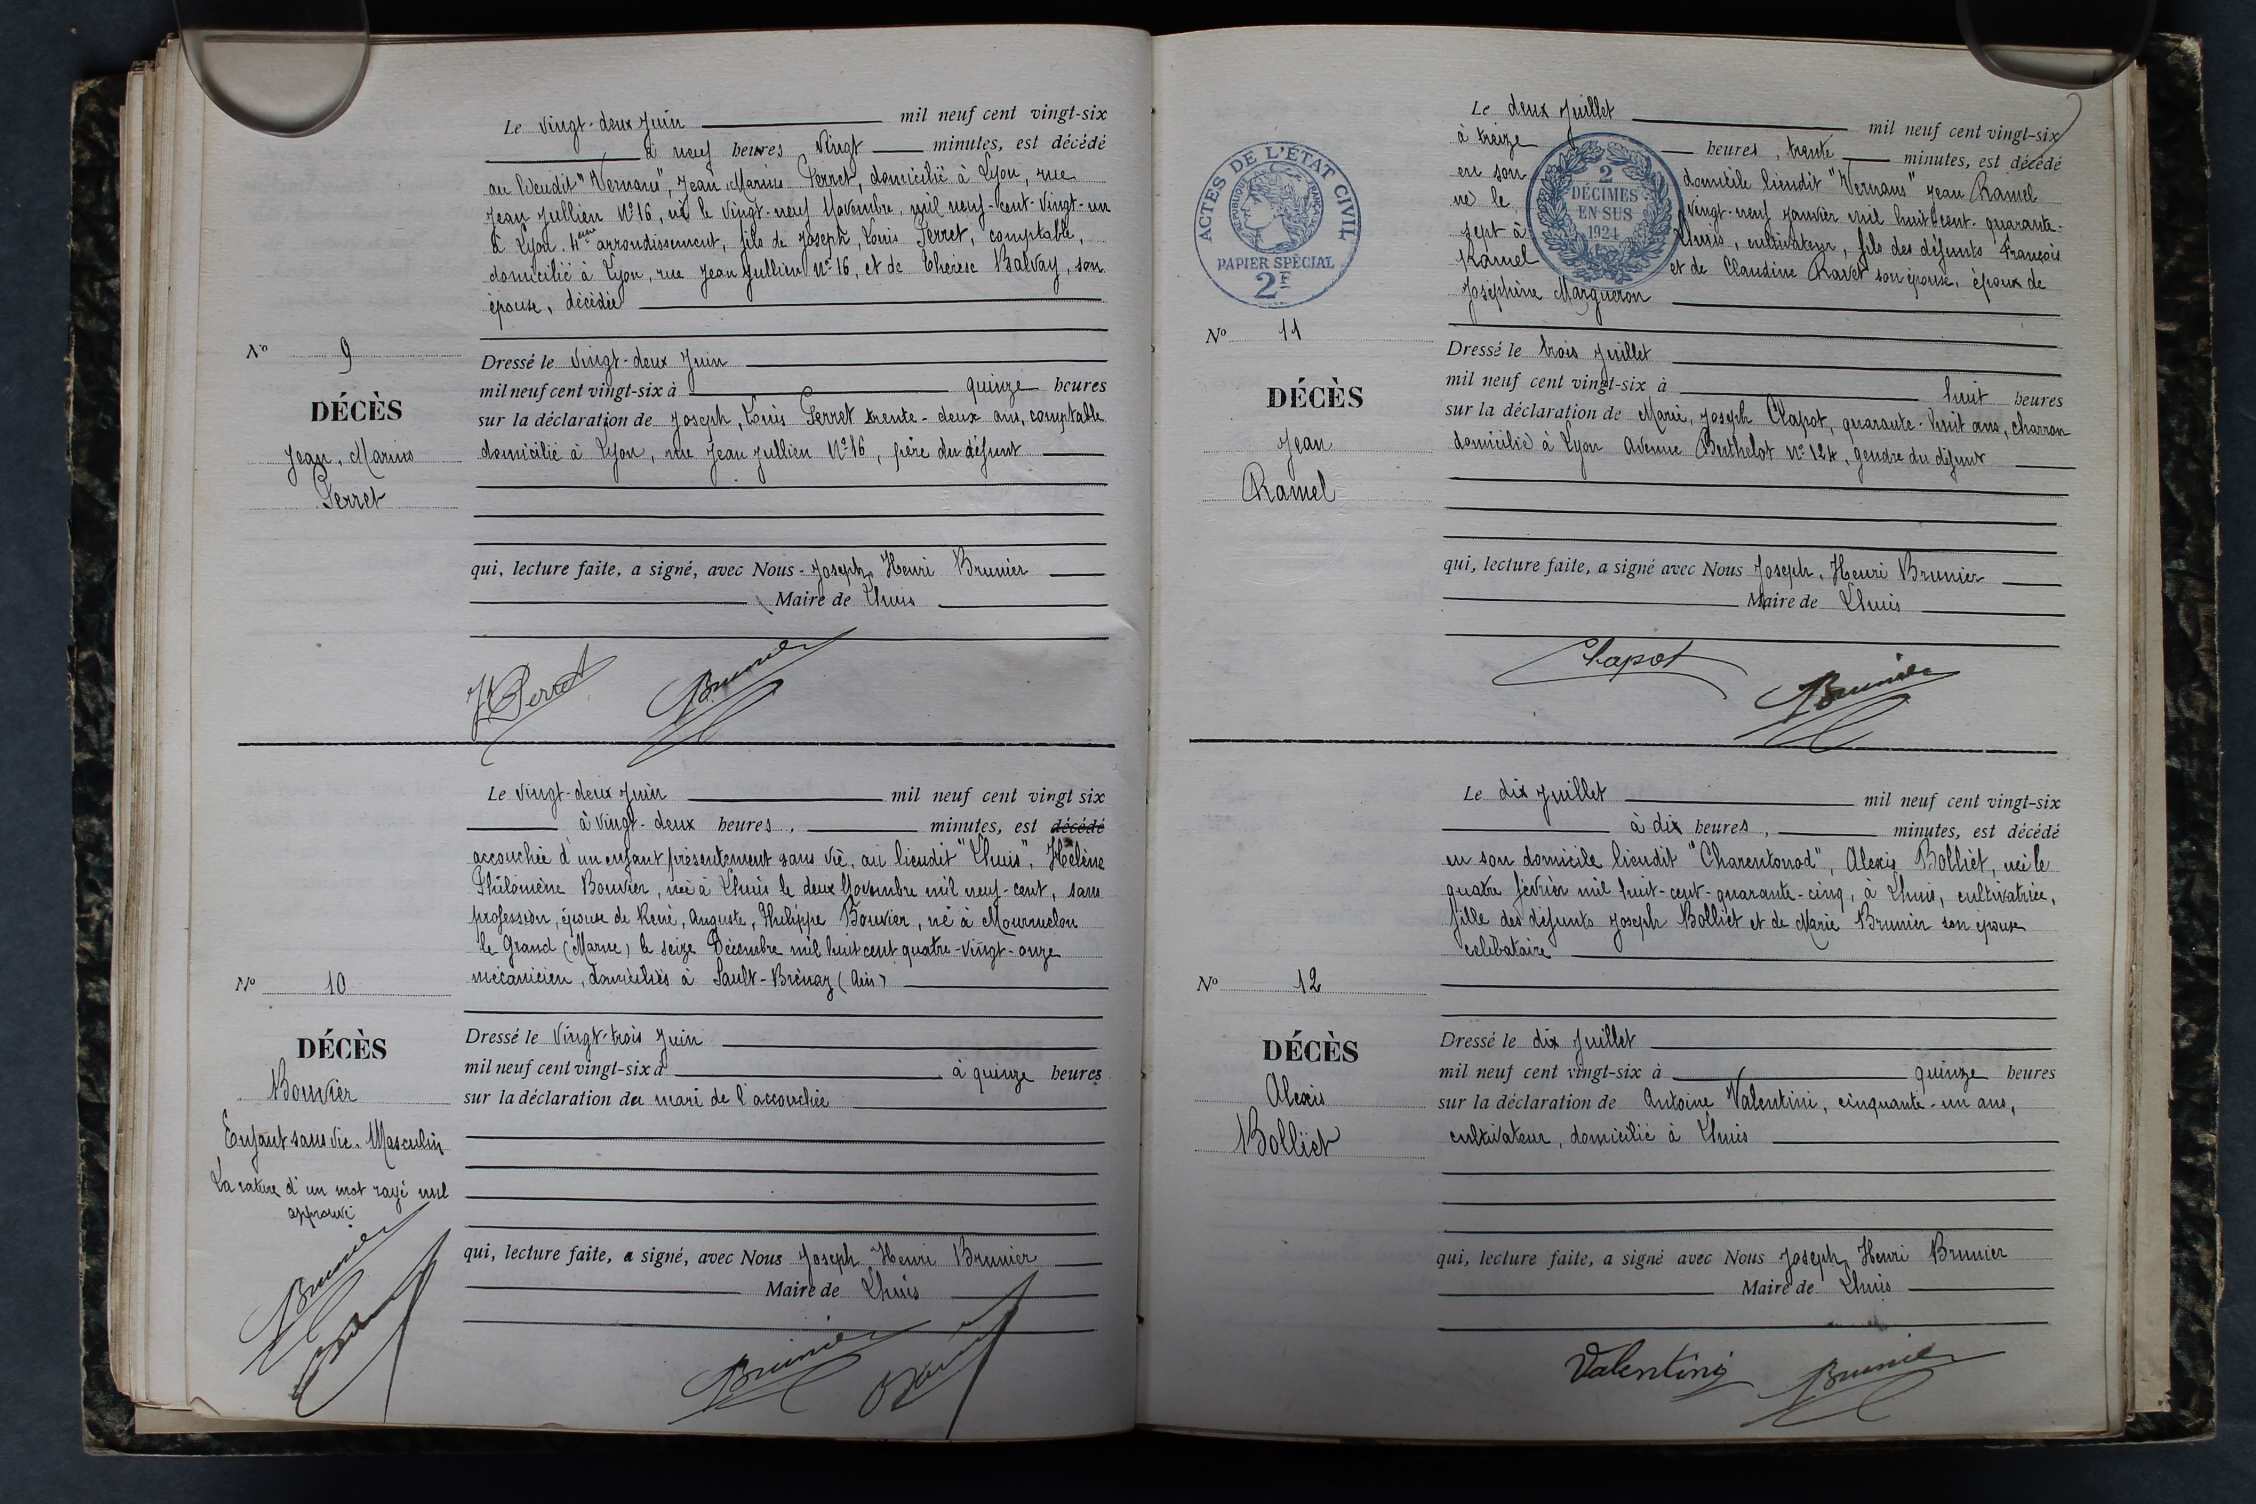 Le vingt-deux Juin mil neuf cent vingt-six
à neuf heures vingt minutes, est décédé
au lieudit "Vernans", Jean Marius Perret, domicilié à Lyon, rue
Jean Jullien N° 16, né le vingt-neuf Novembre, mil neuf-cent-vingt-un
à Lyon 4eme arrondissement, fils de Joseph, Louis Perret, comptable,
domicilié à Lyon, rue Jean Jullien N° 16, et de Thérèse Balvay, son
épouse, décédée
N° 9
DÉCÈS
Jean, Marius
Perret
Dressé le vingt-deux Juin
mil neuf cent vingt-six à quinze heures
sur la déclaration de Joseph, Louis Perret trente-deux ans, comptable
domicilié à Lyon, rue Jean Jullien N° 16, père du défunt
qui, lecture faite, a signé, avec Nous Joseph, Henri Brunier
Maire de Lhuis
JPerret Brunier
Le vingt-deux Juin mil neuf cent vingt six
à vingt-deux heures, minutes, est décédé
accouchée d'un enfant présentement sans vie, au lieudit "Lhuis", Hélène
Philomène Bouvier, née à Lhuis le deux Novembre mil neuf-cent, sans
profession, épouse de René, Auguste, Philippe Bouvier, né à Mourmelon
le Grand (Marne) le seize Décembre mil huit cent quatre-vingt-onze
mécanicien, domiciliés à Sault-Brénaz (Ain)
N° 10
DÉCÈS
Bouvier
Enfant sans vie. Masculin
La rature d'un mot rayé nul
approuvé
Brunier
Dressé le vingt-trois Juin
mil neuf cent vingt-six à à quinze heures
sur la déclaration du mari de l'accouchée
qui, lecture faite, a signé, avec Nous Joseph Henri Brunier
Maire de Lhuis
Brunier
ACTES DE L'ÉTAT CIVIL
RÉPUBLIQUE FRANÇAISE
PAPIER SPÉCIAL
2F
2
DÉCIMES
EN SUS
1924
Le deux Juillet mil neuf cent vingt-six
à treize heures, trente minutes, est décédé
en son domicile lieudit "Vernans" Jean Ramel
né le vingt-neuf Janvier mil huit cent quarante-
sept à Lhuis, cultivateur, fils des défunts François
Ramel et de Claudine Ravet son épouse, époux de
Joséphine Margueron
N° 11
DÉCÈS
Jean
Ramel
Dressé le trois Juillet
mil neuf cent vingt-six à huit heures
sur la déclaration de Marie, Joseph Clapot, quarante-huit ans, charron
domicilié à Lyon Avenue Berthelot N° 124, gendre du défunt
qui, lecture faite, a signé avec Nous Joseph, Henri Brunier
Maire de Lhuis
Clapot Brunier
Le dix Juillet mil neuf cent vingt-six
à dix heures, minutes, est décédé
en son domicile lieudit "Charentonod", Alexis Bolliet, née le
quatre février mil huit-cent-quarante-cinq, à Lhuis, cultivatrice,
fille des défunts Joseph Bolliet et de Marie Brunier son épouse
célibataire
N° 12
DÉCÈS
Alexis
Bolliet
Dressé le dix Juillet
mil neuf cent vingt-six à quinze heures
sur la déclaration de Antoine Valentini, cinquante-un ans,
cultivateur, domicilié à Lhuis
qui, lecture faite, a signé avec Nous Joseph Henri Brunier
Maire de Lhuis
Valentini Brunier